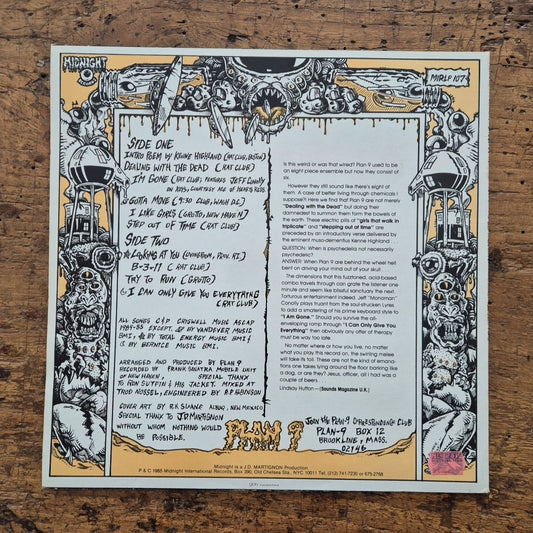 MIDNIGHT
MIRLP 107
SIDE ONE
INTRO POEM BY KENNE HIGHLAND (RAT CLUB, BOSTON)
DEALING WITH THE DEAD (RAT CLUB)
I'M GONE (RAT CLUB; FEATURES JEFF CONOLLY
ON VOX, COURTESY ACE OF HEARTS RCDS.
GOTTA MOVE (9:30 CLUB, WASH. D.C.)
I LIKE GIRLS (GROTTO, NEW HAVEN)
STEP OUT OF TIME (RAT CLUB)
SIDE TWO
LOOKING AT YOU (LIVINGSTON, PROV. R.I.)
B-3-11 (RAT CLUB)
TRY TO RUN (GROTTO)
I CAN ONLY GIVE YOU EVERYTHING
(RAT CLUB)
ALL SONGS C&P CRISWELL MUSIC ASCAP
1984-85 EXCEPT, BY VANDEVER MUSIC
BMI, BY TOTAL ENERGY MUSIC BMI &
IS BY BERNICE MUSIC BMI.
ARRANGED AND PRODUCED BY PLAN 9
RECORDED BY FRANK SINATRA MOBILE UNIT
OF NEW HAVEN, SPECIAL THANX
TO RON SUTFIN & HIS JACKET. MIXED AT
TROD NOSSEL, ENGINEERED BY R.P. ROBINSON
COVER ART BY R.K. SLOANE ALBUQ., NEW MEXICO
SPECIAL THANX TO JD MARTIGNON
WITHOUT WHOM NOTHING WOULD
BE POSSIBLE.
Is this weird or was that wired? Plan 9 used to be
an eight piece ensemble but now they consist of
six.
However they still sound like there's eight of
them. A case of better living through chemicals I
suppose?! Here we find that Plan 9 are not merely
"Dealing with the Dead" but doing their
damnedest to summon them form the bowels of
the earth. These electric pills of "girls that walk in
triplicate" and "stepping out of time" are
preceded by an introductory verse delivered by the
eminent muso-dementius Kenne Highland.
QUESTION: When is psychedelia not necessarily
psychedelic?
ANSWER: When Plan 9 are behind the wheel hell
bent on driving your mind out of your skull.
The dimensions that this fuzztoned, acid-based
combo travels through can grate the listener one
minute and seem like blissful sanctuary the next.
Torturous entertainment indeed. Jeff "Monoman"
Conolly plays truant from the soul-strucken Lyres
to add a smatering of his prime keyboard style to
"I Am Gone." Should you survive the all-
enveloping ramp through "I Can Only Give You
Everything" then obviously any offer of therapy
must be way too late.
No matter where or how you live, no matter
what you play this record on, the swirling melee
will take its toll. These are not the kind of ex-
emanations one takes lying around the floor barking like
a dog, or are they? Jesus, officer, all I had was a
couple of beers.
Lindsay Hutton—(Sounds Magazine U.K.)
PLAN 9
JOIN THE PLAN-9 CYBERSTUNDINGS CLUB
PLAN-9 BOX 12
BROOKLINE, MASS.
02146
Midnight is a J.D. MARTIGNON Production
P & C 1985 Midnight International Records, Box 390, Old Chelsea Sta., NYC 10011 Tel. (212) 741-7230 or 675-2768